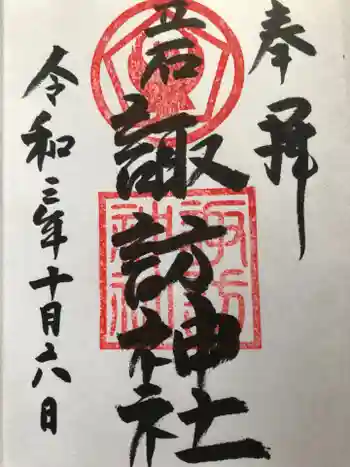 奉拝
立石
諏訪神社
令和三年十月六日
諏訪
神社